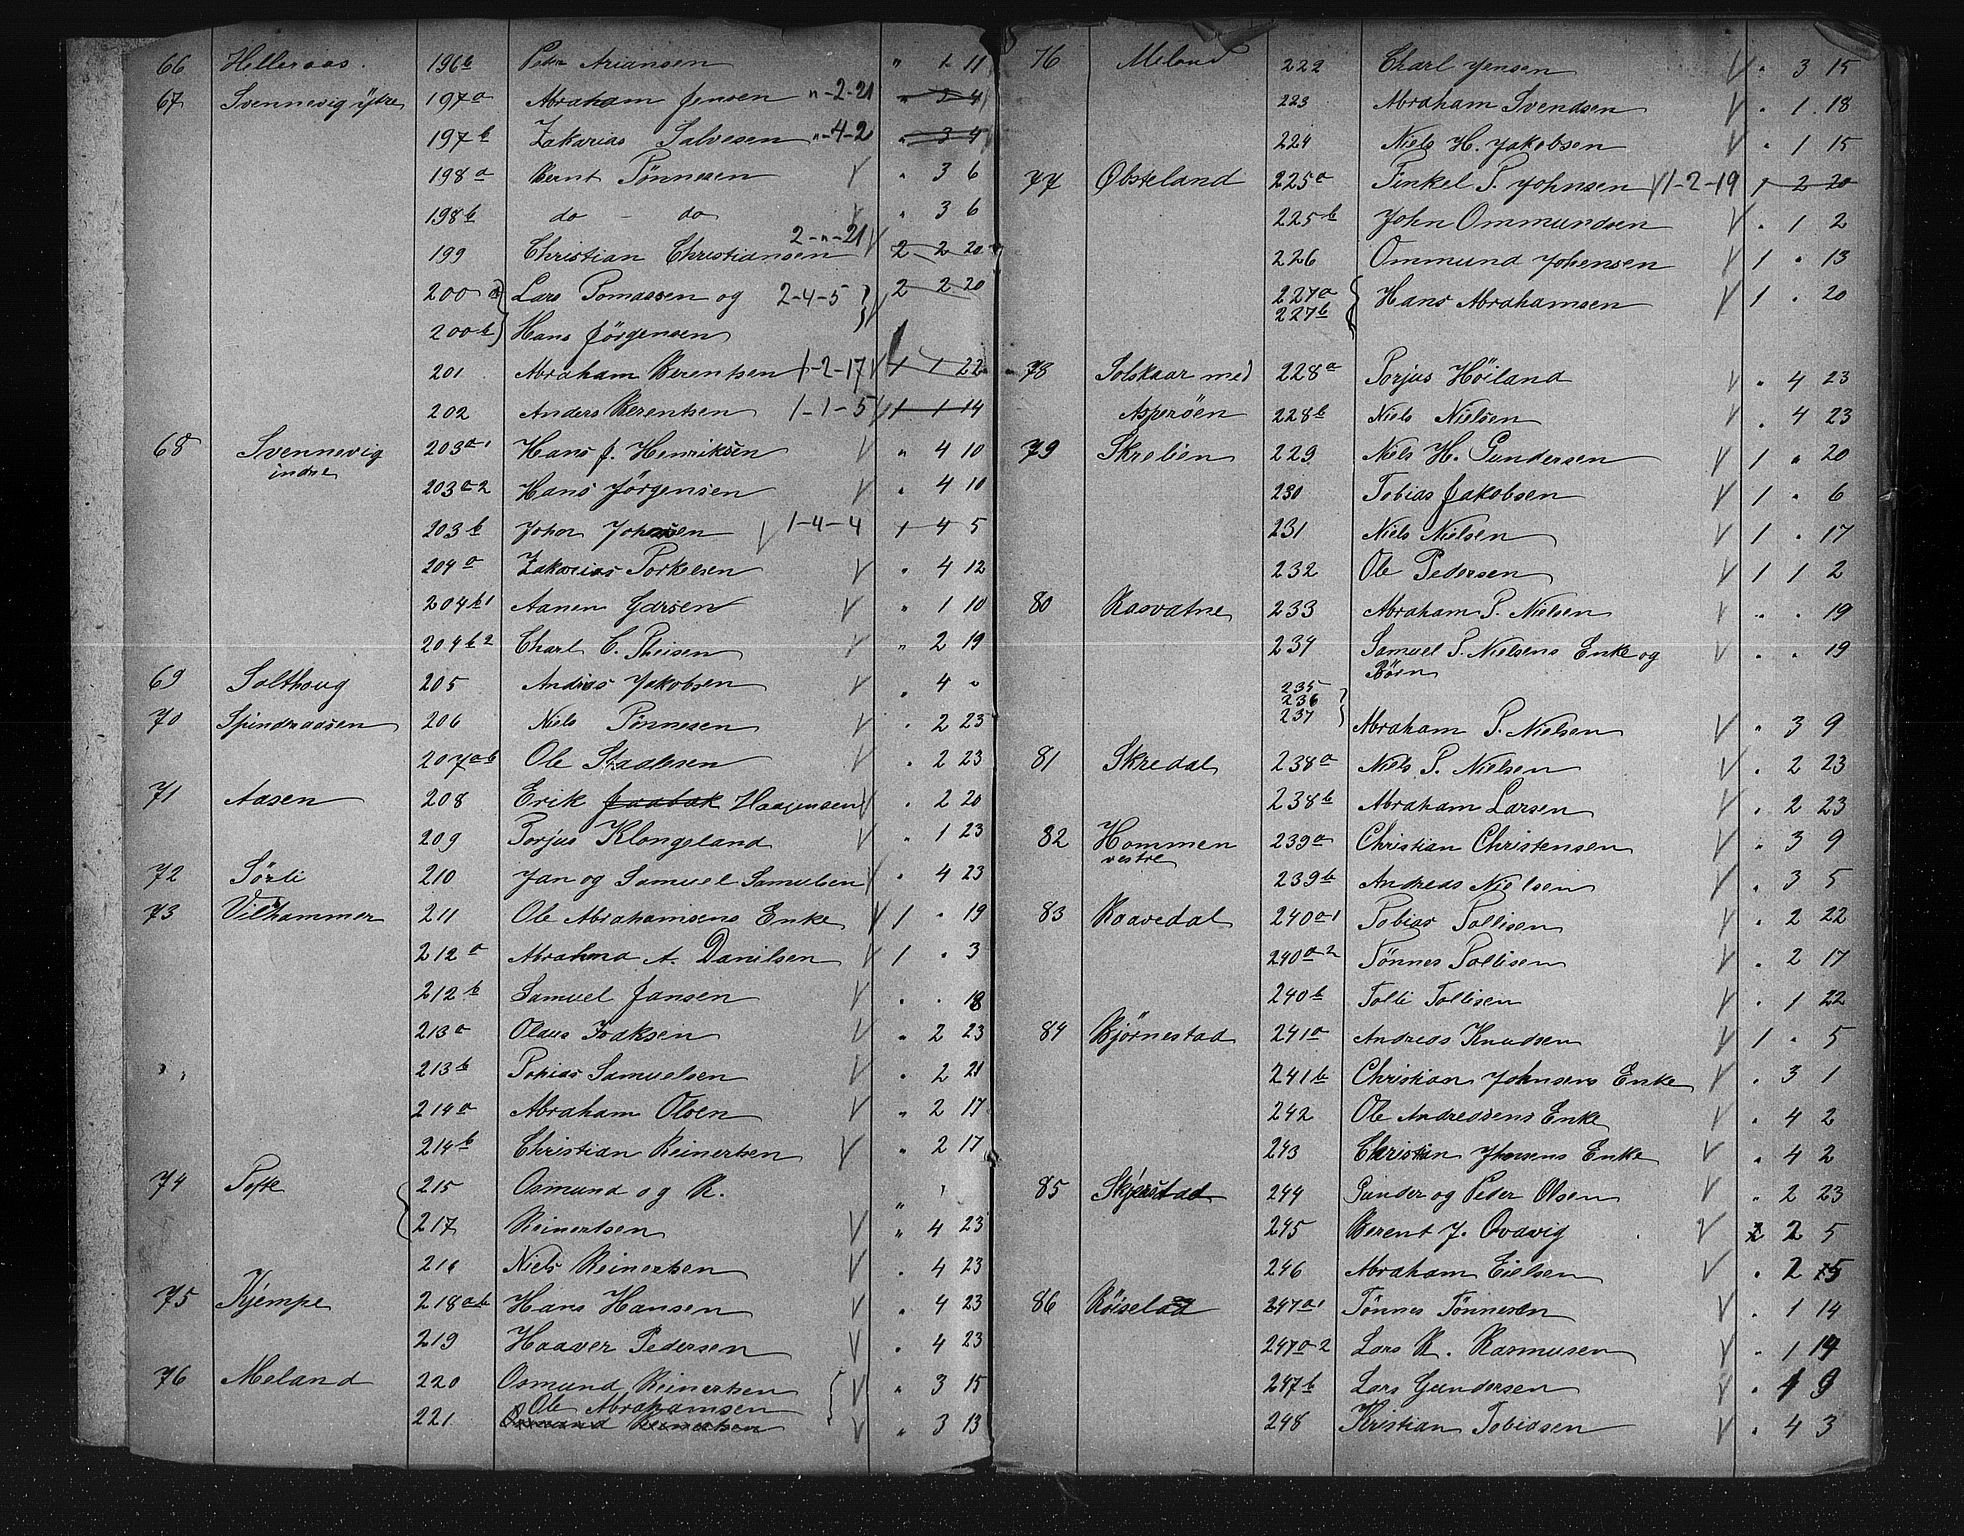 66 Helleraas 196b Peder Ariansen " 1 11
67 Svennevig ytre 197a Abraham Jensen "-2-21 " 2 4
197b Zakarias Salvesen "-4-2 " 3 4
198a Bernt Tönnesen " 3 6
198b do - do " 3 6
199 Christian Christiansen 2-"-21 2 2 20
200a Lars Tomassen og 2-4-5 2 2 20
200b Hans Jörgensen
201 Abraham Berentsen 1-2-17 1 1 22
202 Anders Berentsen 1-1-5 1 1 14
68 Svennevig 203a1 Hans J. Henriksen " 4 10
indre
203a2 Hans Jörgensen " 4 10
203b John Johnsen 1-4-4 1 4 5
204a Zakarias Torkelsen " 4 12
204b1 Aanen Garsen " 1 10
204b2 Charl C. Theisen " 2 19
69 Salthoug 205 Andreas Jakobsen " 4 "
70 Spindraasen 206 Niels Tönnesen " 2 23
207ab Ole Staalesen " 2 23
71 Aasen 208 Erik Jaabæk Haagensen " 2 20
209 Torjus Klongeland " 1 23
72 Sørli 210 Jan og Samuel Samuelsen " 4 23
73 Vilhammer 211 Ole Abrahamsens Enke 1 " 19
212a Abraham A. Danilsen 1 " 3
212b Samuel Jansen " " 18
213a Olaus Isaksen " 2 23
213b Tobias Samuelsen " 2 21
214a Abraham Olsen " 2 17
214b Christian Reinertsen " 2 17
74 Tofte 215 Osmund og R. "
217 Reinertsen " 4 23
216 Niels Reinertsen " 4 23
75 Kjempe 218ab Hans Hansen " 4 23
219 Haaver Pedersen " 4 23
76 Meland 220 Osmund Reinertsen " 3 15
Ole Abrahamsen
221 Osmund Reinertsen " 3 13
76 Meland 222 Charl Jensen " 3 15
223 Abraham Svendsen " 1 18
224 Niels H. Jakobsen " 1 15
77 Øbsteland 225a Tinkel T. Johnsen 1-2-19 1 2 20
225b John Ommundsen " 1 2
226 Ommund Johensen 1 " 13
227a Hans Abrahamsen 1 " 20
227b
78 Solskaar med 228a Torjus Höiland " 4 23
Asperöen 228b Niels Nielsen " 4 23
79 Skrelien 229 Niels H. Gundersen 1 " 20
230 Tobias Jakobsen 1 " 6
231 Niels Nielsen 1 " 17
232 Ole Pedersen 1 1 2
80 Rasvatne 233 Abraham T. Nielsen " " 19
234 Samuel T. Nielsens Enke og " " 19
Børn
235
236
237 Abraham T. Nielsen " 3 9
81 Skredal 238a Niels T. Nielsen " 2 23
238b Abraham Larsen " 2 23
82 Hommen 239a Christian Christensen " 3 9
vestre
239b Andreas Nielsen " 3 5
83 Raavedal 240a1 Tobias Tollisen " 2 22
240a2 Tönnes Tollisen " 2 17
240b Tolli Tollisen " 1 22
84 Bjørnestad 241a Andreas Knudsen 1 " 5
241b Christian Johnsens Enke " 3 1
242 Ole Andreassens Enke " 4 2
243 Christian Jhnsens Enke " 4 2
85 Skjerstad 244 Gunder og Peder Olsen " 2 23
245 Berent J. Ovavig 2 5
246 Abraham Eielsen " 2 5
86 Röiseland 247a1 Tönnes Tönnesen " 1 14
247a2 Lars R. Rasmusen " 1 14
247b Lars Gundersen " 1 9
248 Kristian Tobiasen " 4 3